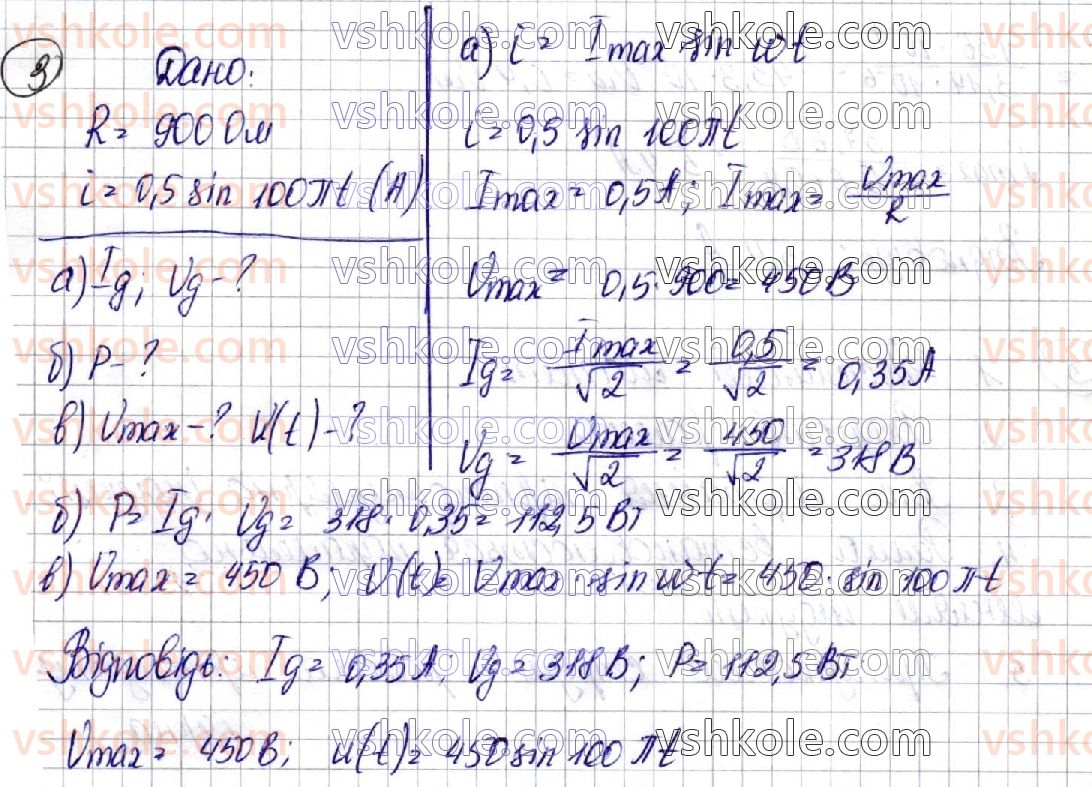 3
Дано:
R = 900 Ом
i = 0,5 sin 100πt (А)
а) Iд; Uд - ?
б) P - ?
в) Umax - ? U(t) - ?
а) i = Imax sin ωt
i = 0,5 sin 100πt
Imax = 0,5А; Imax = Umax / R
Umax = 0,5 · 900 = 450 В
Iд = Imax / √2 = 0,5 / √2 = 0,35 А
Uд = Umax / √2 = 450 / √2 = 318 В
б) P = Iд · Uд = 318 · 0,35 = 112,5 Вт
в) Umax = 450 В; U(t) = Umax · sin ωt = 450 · sin 100πt
Відповідь: Iд = 0,35 А; Uд = 318 В; P = 112,5 Вт
Umax = 450 В; u(t) = 450 sin 100πt
vshkole.com